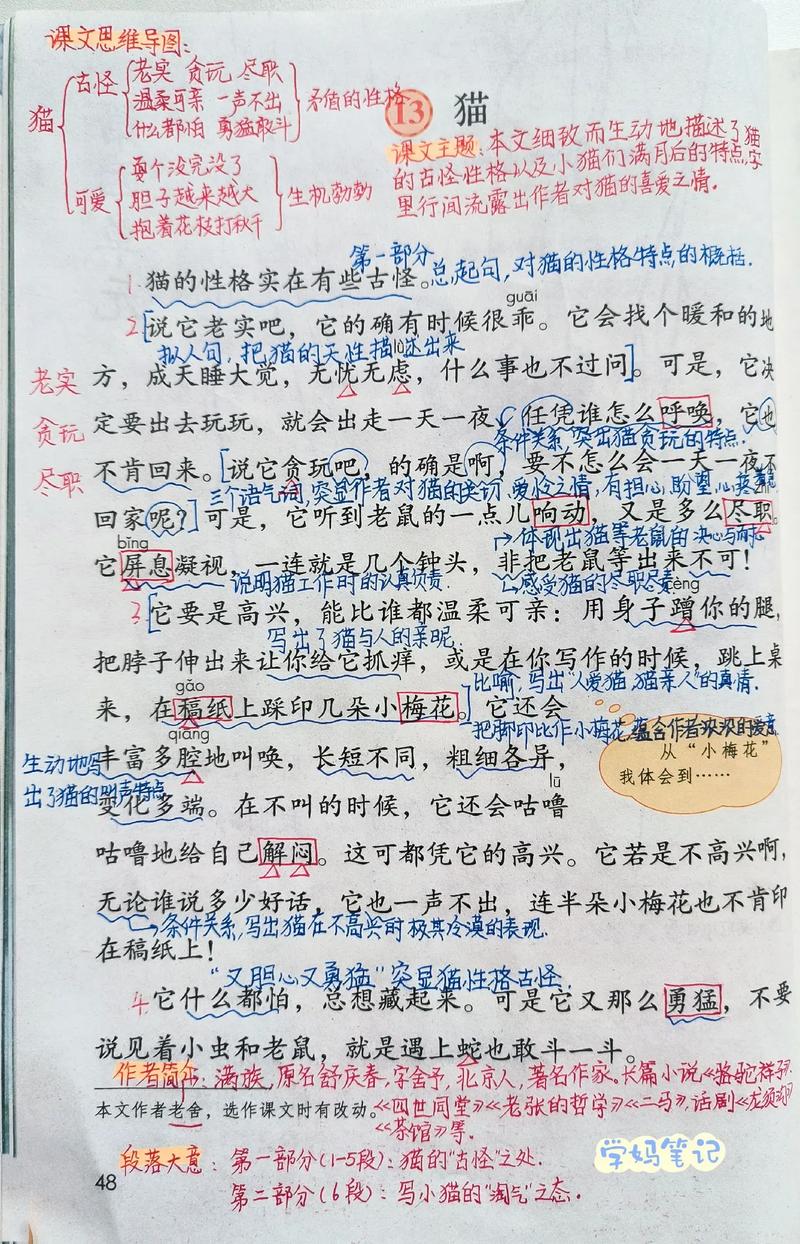 课文思维导图：
猫
古怪
老实 贪玩 尽职
温柔可亲 一声不出
什么都怕 勇猛敢斗
矛盾的性格
可爱
耍个没完没了
胆子越来越大
抱着花枝打秋千
生机勃勃
13 猫
课文主题：本文细致而生动地描述了猫
的古怪性格以及小猫们满月后的特点，字
里行间流露出作者对猫的喜爱之情。
第一部分
总起句，对猫的性格特点的概括．
1. 猫的性格实在有些古怪。
guāi
2 [说它老实吧，它的确有时候很乖。它会找个暖和的地
拟人句，把猫的天性描述出来
lǜ
老实
方，成天睡大觉，无忧无虑，什么事也不过问]。可是，它决
贪玩
定要出去玩玩，就会出走一天一夜，任凭谁怎么呼唤，它也
条件关系，突出猫贪玩的特点．
尽职
不肯回来。[说它贪玩吧，的确是啊，要不怎么会一天一夜不
三个语气词，突显作者对猫的关切、爱怜之情，有担心，盼望，心疼
回家呢？]可是，它听到老鼠的一点儿响动，又是多么尽职。
体现出猫等老鼠的决心与耐心
bǐng
它屏息凝视，一连就是几个钟头，非把老鼠等出来不可！
说明猫工作时的认真负责．
感受猫的尽职尽责
cèng
3. [它要是高兴，能比谁都温柔可亲：用身子蹭你的腿，
写出了猫与人的亲昵．
把脖子伸出来让你给它抓痒，或是在你写作的时候，跳上桌
比喻，写出“人爱猫，猫亲人”的真情．
gǎo
来，在稿纸上踩印几朵小梅花。]它还会
把脚印比作小梅花，蕴含作者浓浓的爱意
qiāng
生动地写
出了猫的叫声特点
丰富多腔地叫唤，长短不同，粗细各异，
从“小梅花”
我体会到……
lū
变化多端。在不叫的时候，它还会咕噜
咕噜地给自己解闷。这可都凭它的高兴。它若是不高兴啊，
无论谁说多少好话，它也一声不出，连半朵小梅花也不肯印
条件关系，写出猫在不高兴时极其冷漠的表现．
在稿纸上！
“又胆心又勇猛”突显猫性格古怪．
4. 它什么都怕，总想藏起来。可是它又那么勇猛，不要
说见着小虫和老鼠，就是遇上蛇也敢斗一斗。
作者简介：满族，原名舒庆春，字舍予，北京人，著名作家。长篇小说《骆驼祥子》
本文作者老舍，选作课文时有改动。
《四世同堂》《老张的哲学》《二马》，话剧《龙须沟》
《茶馆》等．
段落大意：第一部分（1-5段）：猫的“古怪”之处．
第二部分（6段）：写小猫的“淘气”之态．
学妈笔记
48